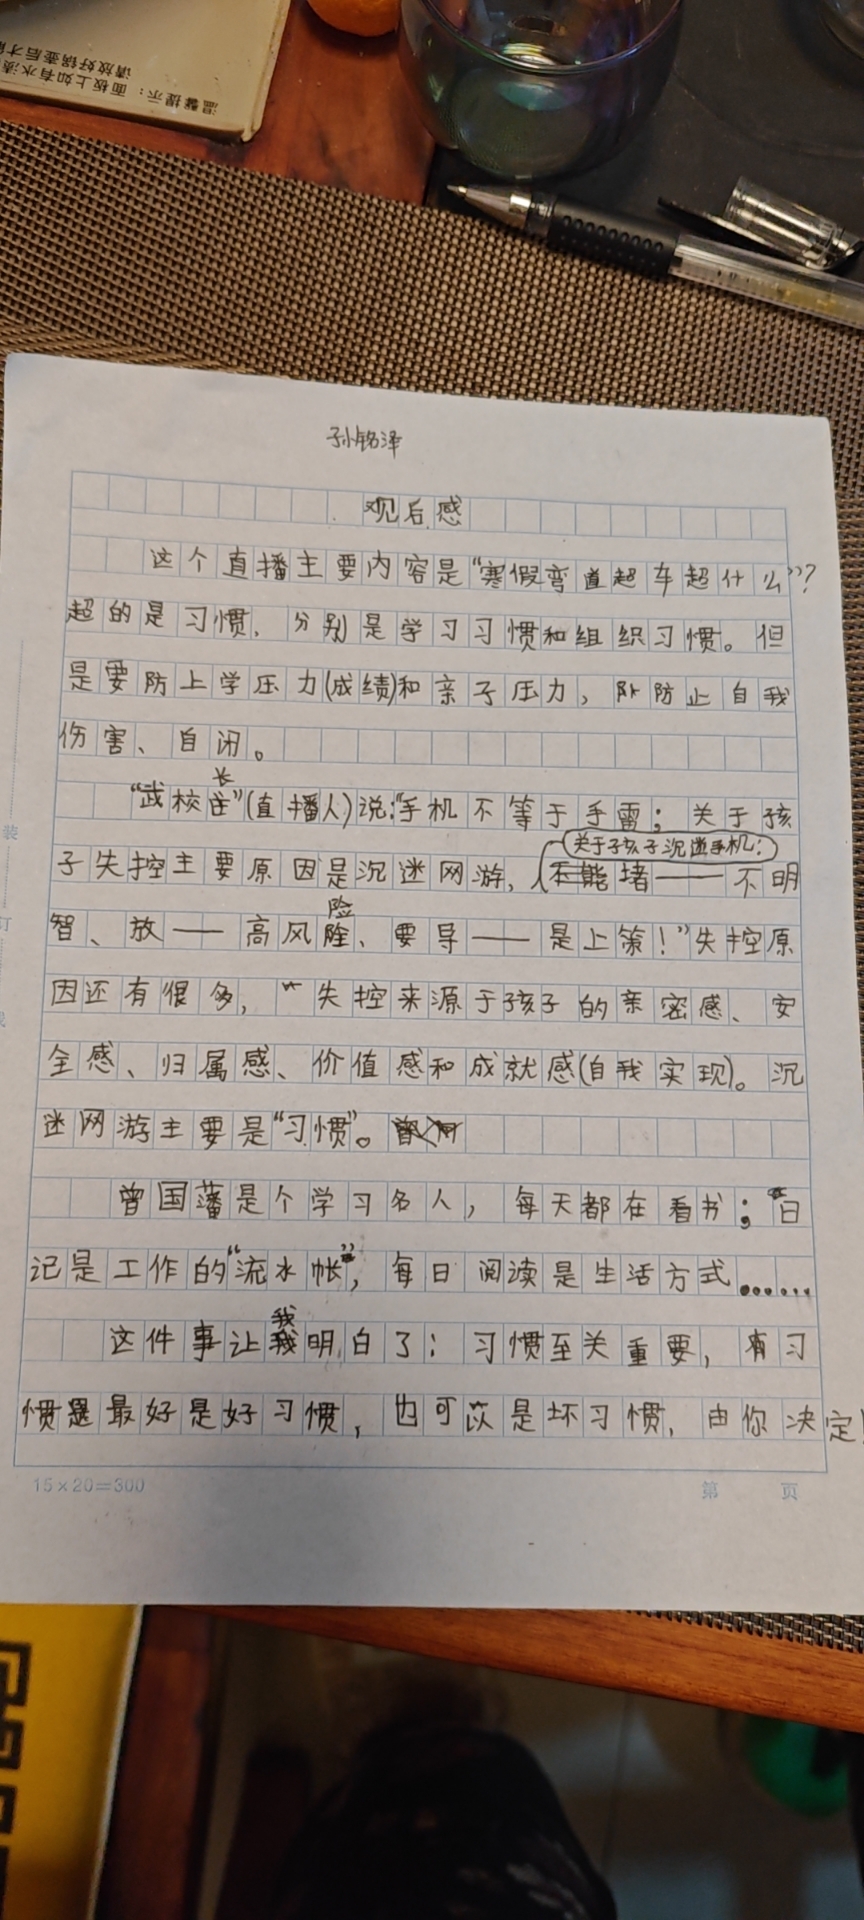 温馨提示：面板上如有水渍
请放好锅壶后才
孙铭泽
观后感
这个直播主要内容是“寒假弯道超车超什么”？
超的是习惯，分别是学习习惯和组织习惯。但
是要防止学压力(成绩)和亲子压力，防止自我
伤害、自闭。
长
“武校”(直播人)说:“手机不等于手雷；关于孩
关于孩子沉迷手机：
子失控主要原因是沉迷网游，堵——不明
险
智、放——高风、要导——是上策！”失控原
因还有很多，失控来源于孩子的亲密感、安
全感、归属感、价值感和成就感(自我实现)。沉
迷网游主要是“习惯”。
曾国藩是个学习名人，每天都在看书；日
记是工作的“流水帐”，每日阅读是生活方式……
我
这件事让明白了：习惯至关重要，有习
惯是最好是好习惯，也可以是坏习惯，由你决定！
15×20=300
第 页
装
订
线